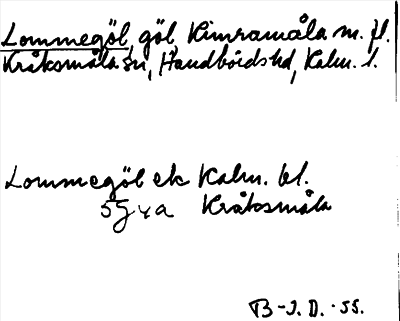 Lommegöl, göl, Kimramåla m. fl.
Kråksmåla sn, Handbörds hd, Kalm. l.
Lommegöl ek Kalm. bl.
5G 4a Kråksmåla
B-J. D. -55.